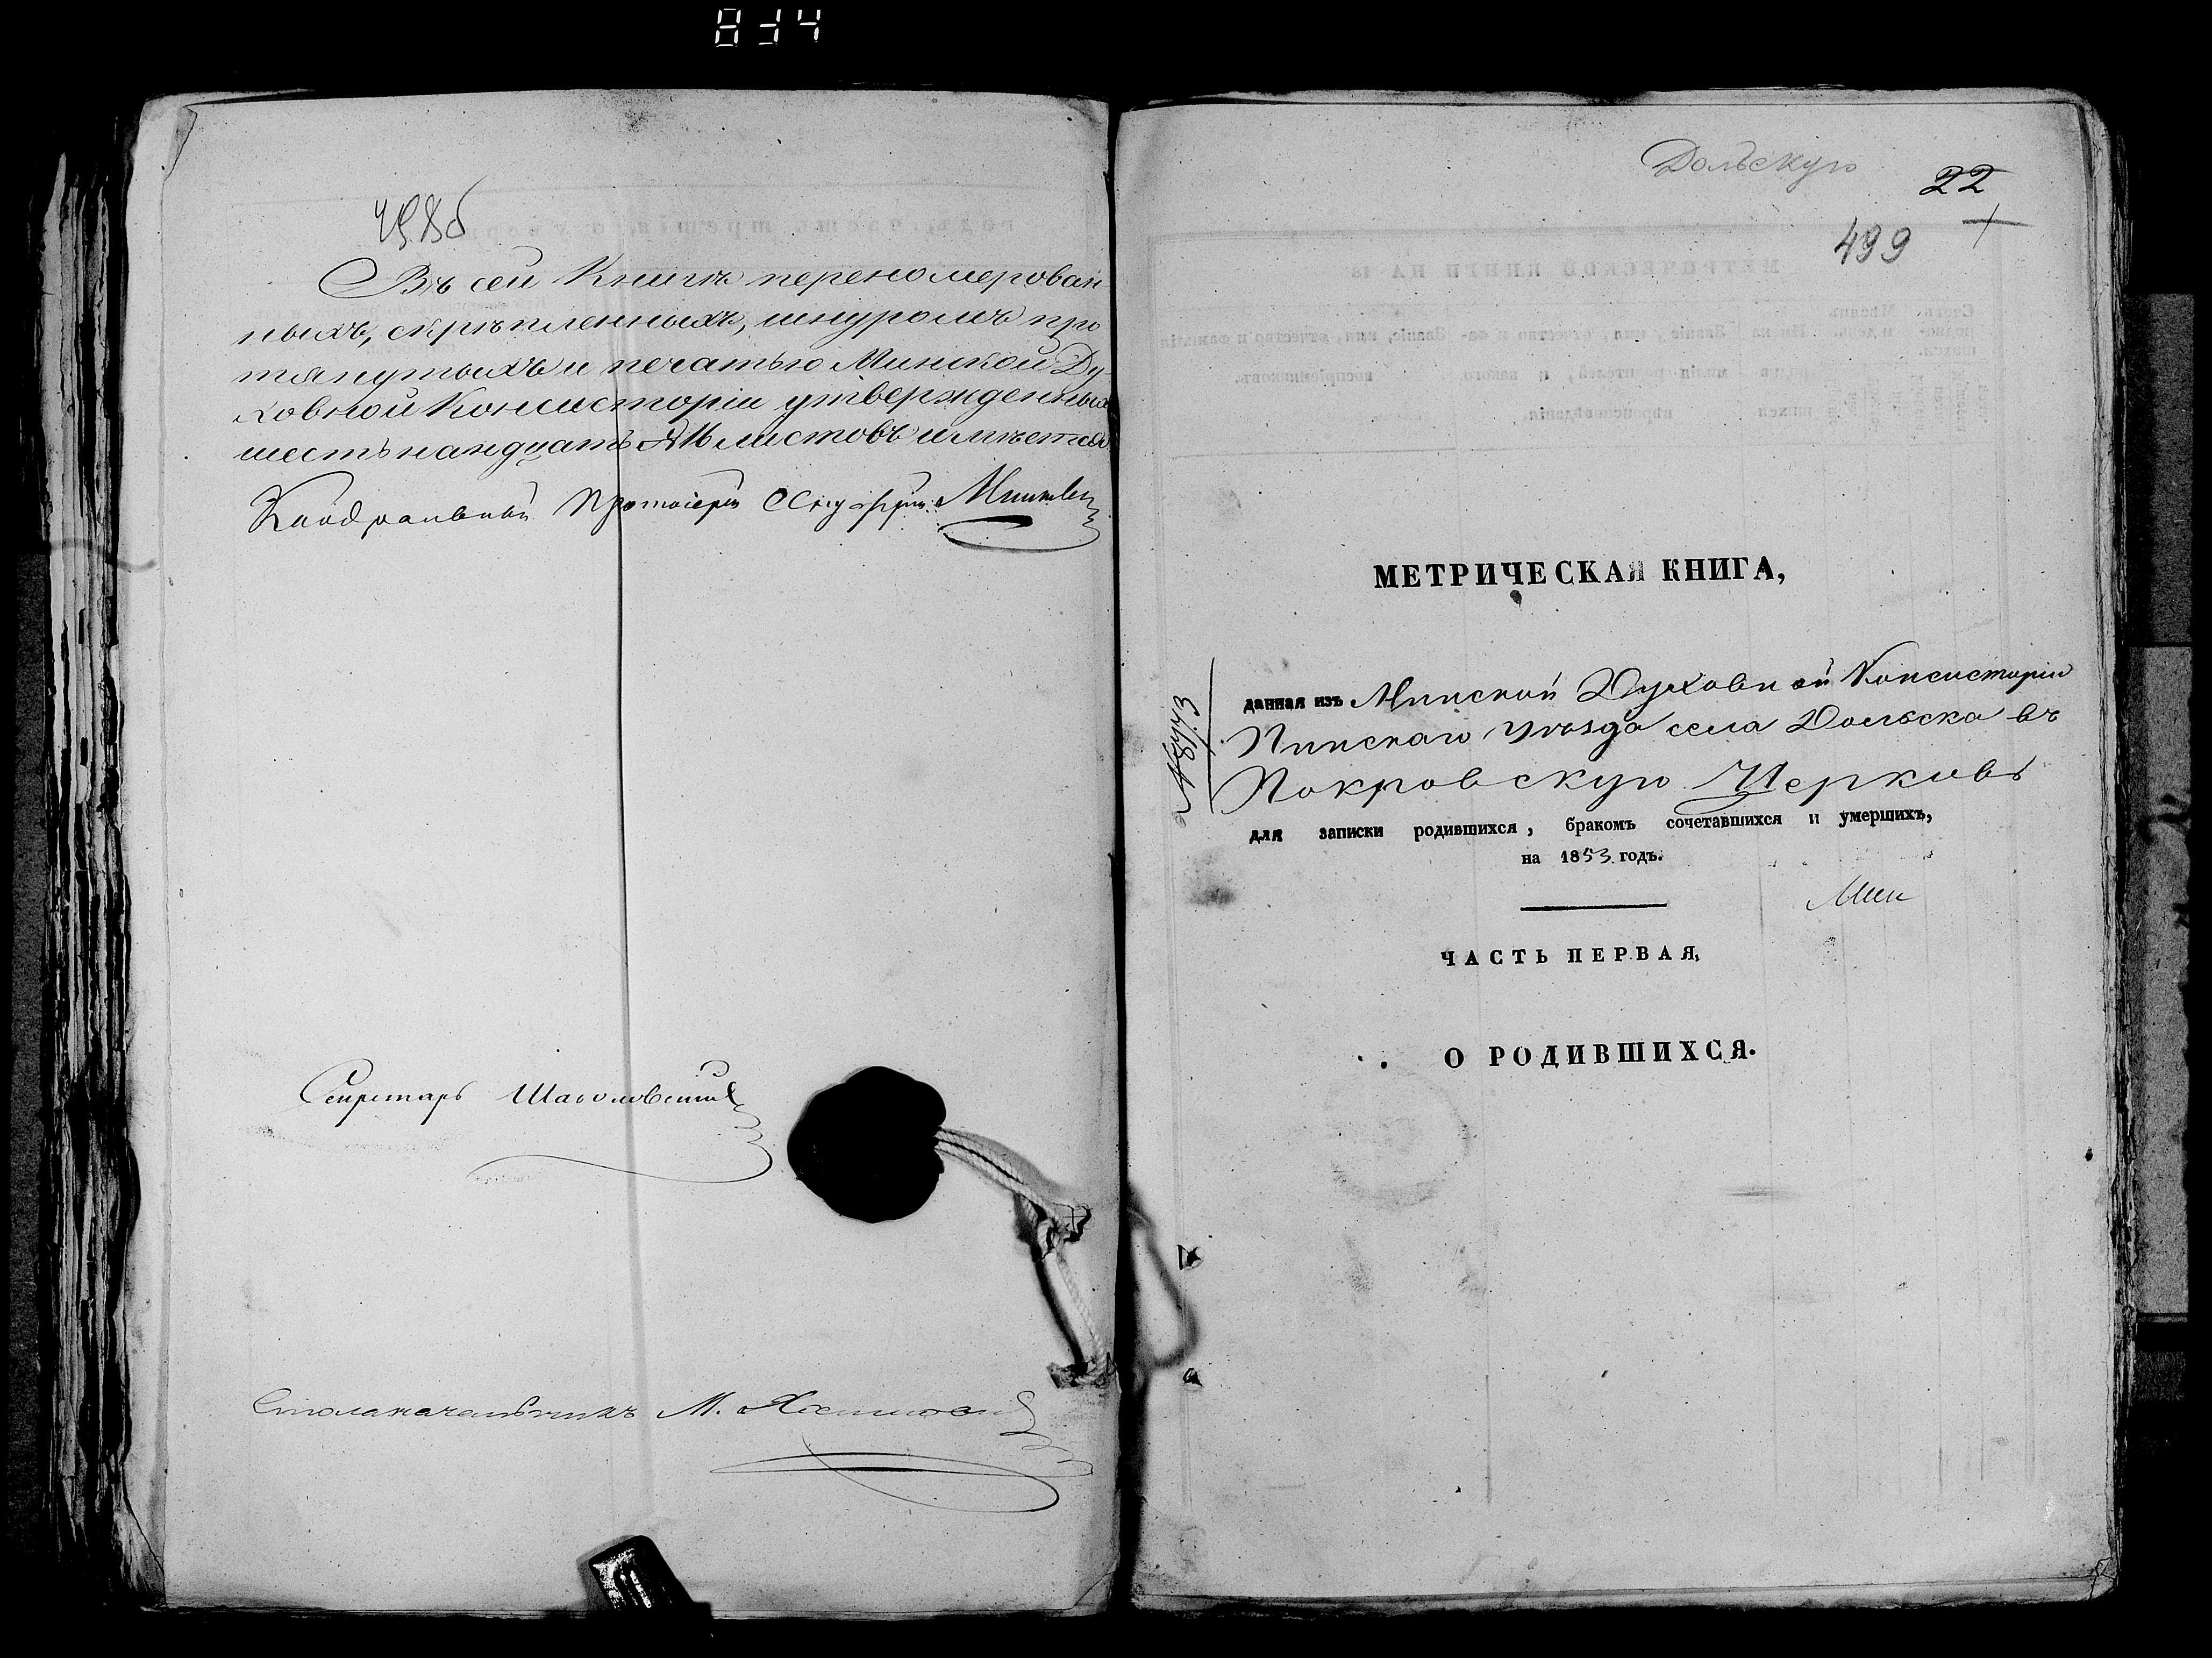 834
498 об
Въ сей Книгѣ переномерован
ныхъ, скрѣпленныхъ, шнуромъ про
тянутыхъ и печатью Минской Ду-
ховной Консисторіи утвержденныхъ
шестьнандцать 16 листовъ имѣется.
Каѳдральный Протоіерей
Секретарь
Столоначальникъ М.
Дольскую
22
499
МЕТРИЧЕСКАЯ КНИГА,
данная изъ Минской Духовной Консисторіи
Пинскаго уѣзда села Дольска въ
Покровскую Церковь
для записки родившихся, бракомъ сочетавшихся и умершихъ,
на 1853 годъ.
Мин
ЧАСТЬ ПЕРВАЯ,
О РОДИВШИХСЯ.